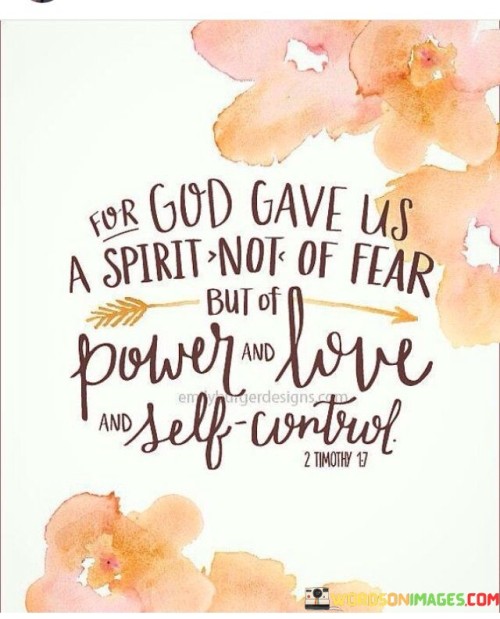 FOR GOD GAVE US
A SPIRIT >NOT< OF FEAR
BUT of
power AND love
emilyburgerdesigns.com
AND self-control.
2 TIMOTHY 1:7
WORDSONIMAGES.COM